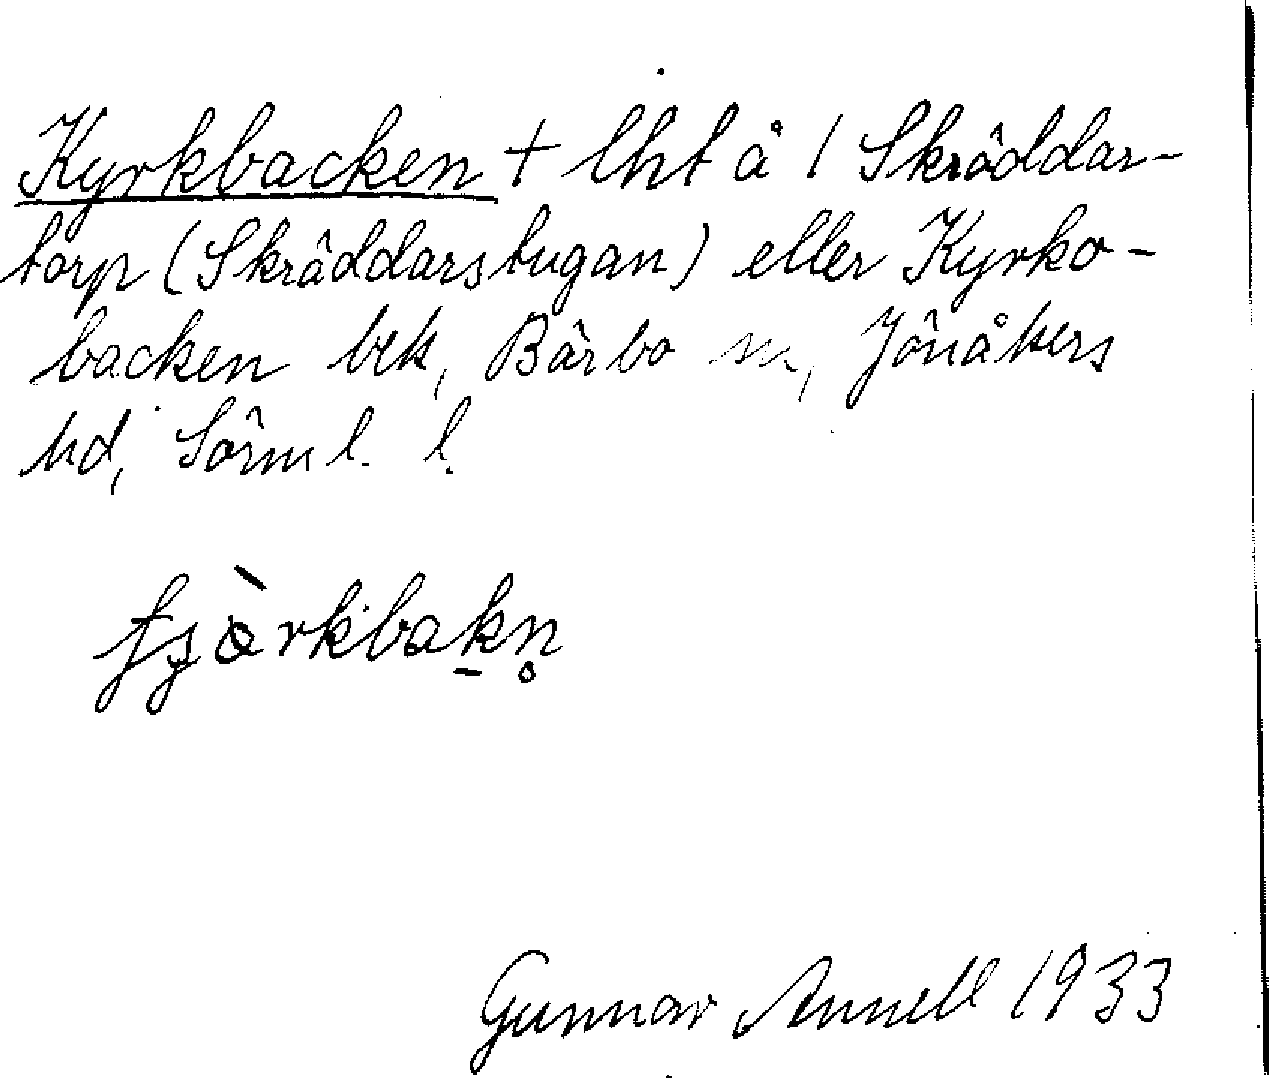 Kyrkbacken + lht å 1 Skräddar-
torp (Skräddarstugan) eller Kyrko-
backen bek, Bärbo sn, Jönåkers
hd, Sörml. l.
Gunnar Annell 1933